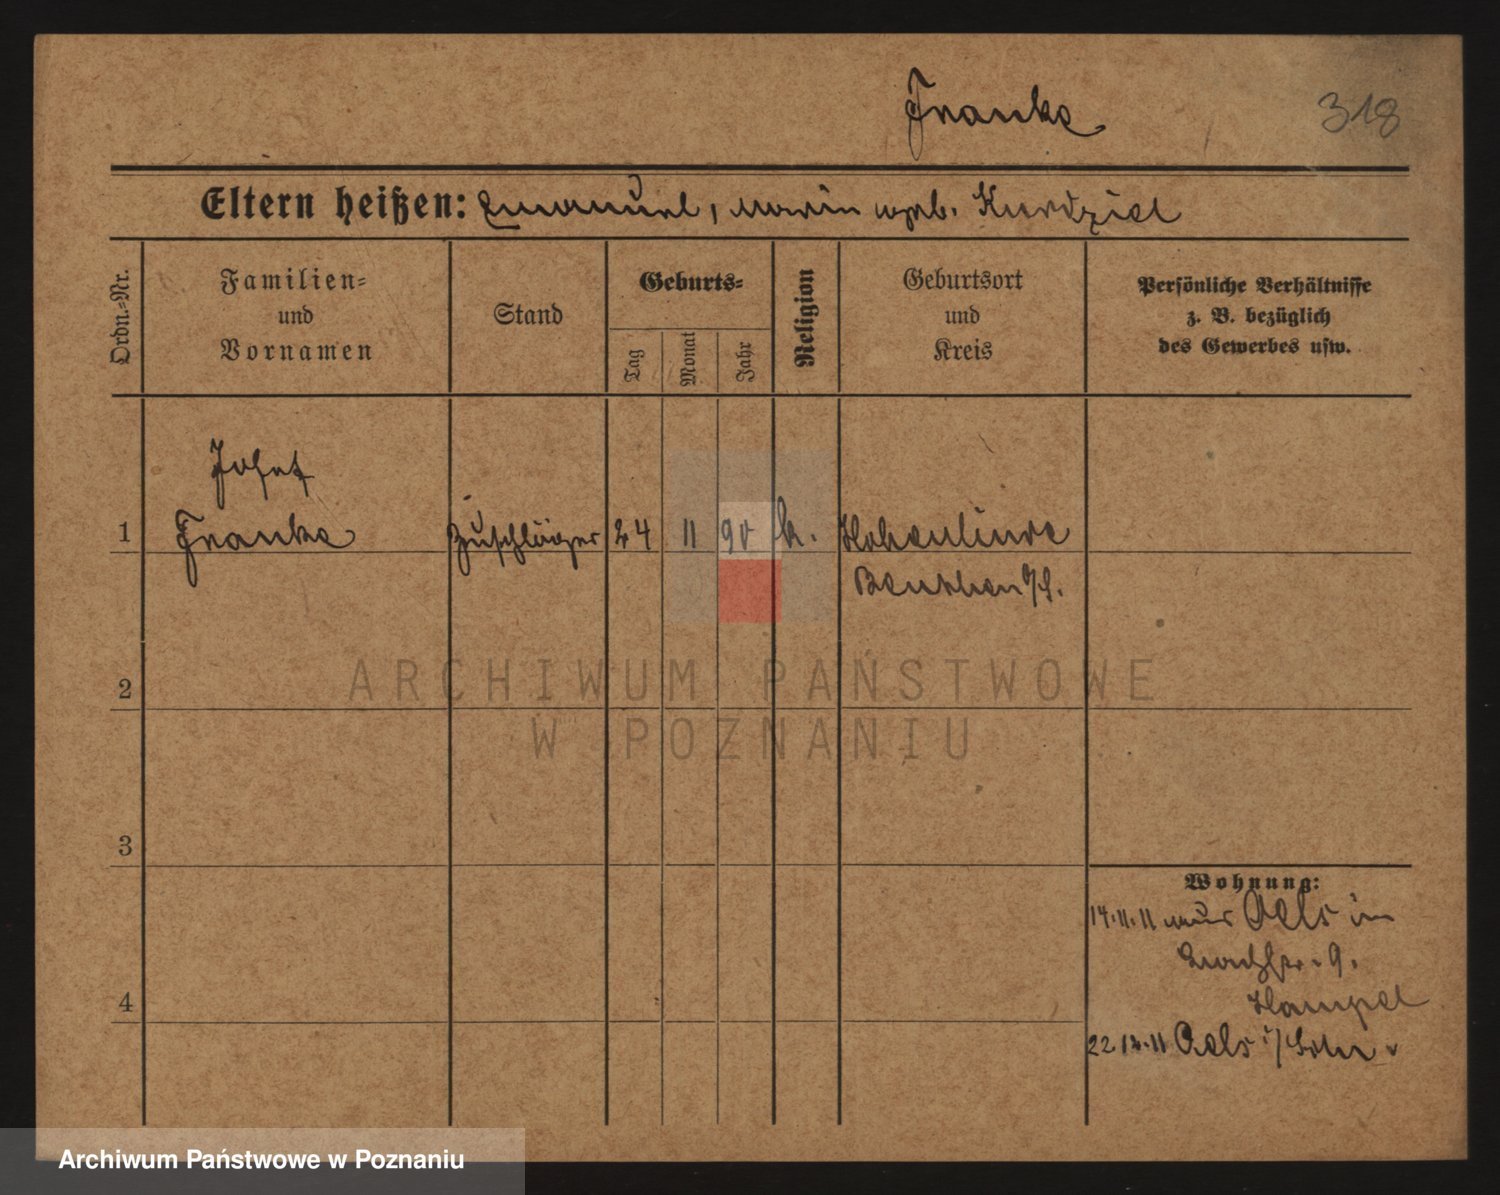 Franke
318
Eltern heißen: Emanuel, Marie geb. Kurdziel
Ordn.=Nr.
Familien=
und
Vornamen
Stand
Geburts=
Tag
Monat
Jahr
Religion
Geburtsort
und
Kreis
Persönliche Verhältnisse
z. B. bezüglich
des Gewerbes usw.
Josef
1 Franke Zuschläger 24 11 90 k. Hohenlinde
Beuthen O/S.
2
ARCHIWUM PAŃSTWOWE
W POZNANIU
3
Wohnung:
14.11.11 aus Oels in
9.
Hampel
4
22.12.11 Oels i/Schl.
Archiwum Państwowe w Poznaniu